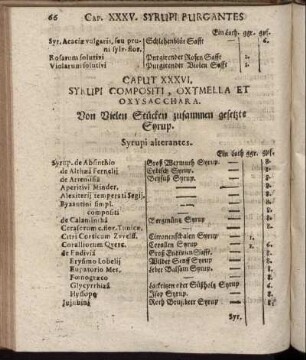 66 Cap. XXXV. SYRUPI PURGANTES
Ein Loth. ggr. gpf.
Syr. Acaciæ vulgaris, seu pruni sylv. flor. Schlehenblüt Safft — 6.
Rosarum solutivi Purgirender Rosen Safft 1.
Violarum solutivi Purgirender Violen Safft 2.
CAPUT XXXVI.
SYRUPI COMPOSITI, OXYMELLA ET
OXYSACCHARA.
Von Vielen Stücken zusammen gesetzte
Syrup.
Syrupi alterantes.
Ein Loth ggr. gpf.
Syrup. de Absinthio Groß Wermuth Syrup
de Althæa Fernelij Eybisch Syrup
de Artemisia Beyfuß Syrup
Aperitivi Minder.
Alexiterij temperati Segij
Byzantini simpl.
compositi
de Calamintha Bergmüntz Syrup
Cerasorum
Citri Corticum Zvvelff. Citronenschalen Syrup
Coralliorum Corallen Syrup
de Endivia Groß Endivien Safft
Erysimo Lobelij Wilder Senff Syrup
Eupatorio Mes. Leber Balsam Syrup
Fœnogræco
Glycyrrhiza Süßholtz Syrup
Hyssopo Isop Syrup
Jujubina Roth Brustbeer Syrup
Syr.